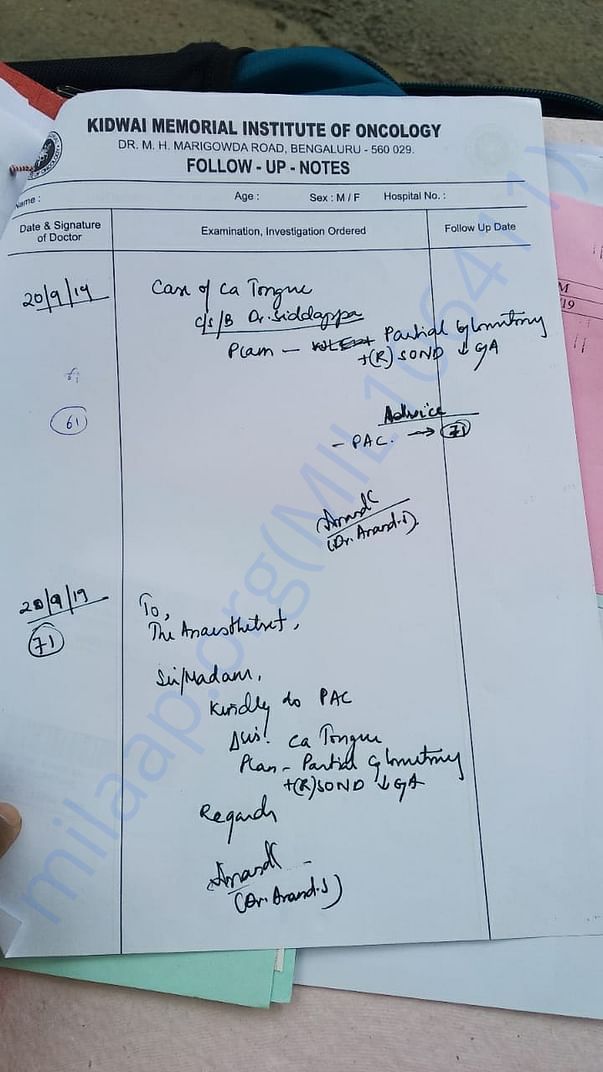 KIDWAI MEMORIAL INSTITUTE OF ONCOLOGY
DR. M. H. MARIGOWDA ROAD, BENGALURU - 560 029.
FOLLOW - UP - NOTES
Name : Age : Sex : M / F Hospital No. :
Date & Signature of Doctor
Examination, Investigation Ordered
Follow Up Date
20/9/19
Case of Ca Tongue
c/s/B Dr. Siddappa
Plan - Partial Glossitomy
+(R) SOND ↓ GA
61
Advice
- PAC. → 71
Anand
(Dr. Anand.J).
20/9/19
71
To,
The Anaesthetist,
Sir/Madam,
Kindly do PAC
Ca Tongue
Plan - Partial Glossitomy
+(R) SOND ↓ GA
Regards
Anand
(Dr. Anand.J)
M
/19
milaap.org(MIL106411)